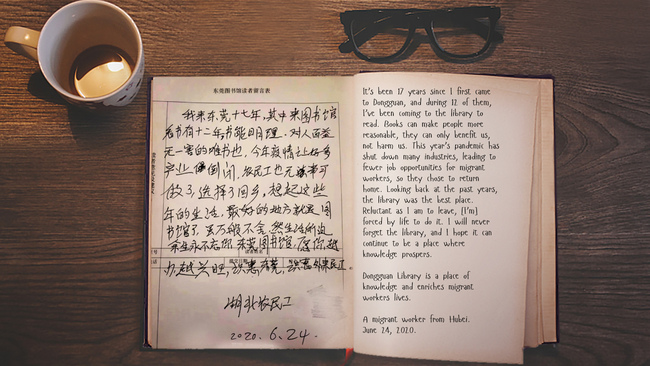 东莞图书馆读者留言表
我来东莞十七年,其中来图书馆
看书有十二年,书能明理,对人百益
无一害的唯书也,今年疫情让好多
产业倒闭,农民工也无事可
做了,选择了回乡,想起这些
年的生活,最好的地方就是图
书馆了,虽万般不舍,然生活所迫,
余生永不忘你,东莞图书馆,愿你越
办越兴旺,识惠东莞,识惠外来民工。
湖北农民工
2020.6.24.
It's been 17 years since I first came
to Dongguan, and during 12 of them,
I've been coming to the library to
read. Books can make people more
reasonable, they can only benefit us,
not harm us. This year's pandemic has
shut down many industries, leading to
fewer job opportunities for migrant
workers, so they chose to return
home. Looking back at the past years,
the library was the best place.
Reluctant as I am to leave, (I'm)
forced by life to do it. I will never
forget the library, and I hope it can
continue to be a place where
knowledge prospers.
Dongguan Library is a place of
knowledge and enriches migrant
workers lives.
A migrant worker from Hubei.
June 24, 2020.